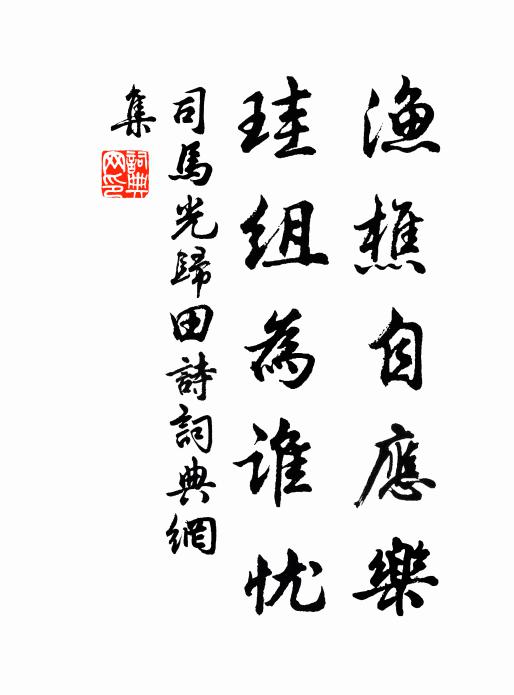 漁樵自應樂
珪組為誰忧
司馬光歸田詩詞典網
集
詞典
网印